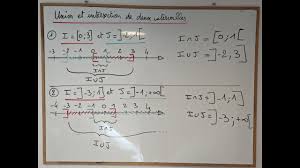 Union et intersection de deux intervalles
① I = [0;3] et J = ]-2;1[
-3 -2 -1 0 1 2 3 4
I∩J
I∪J
I∩J = [0,1[
I∪J = ]-2,3]
② I = ]-3;1] et J = ]-1;+∞[
-4 -3 -2 -1 0 1 2 3 4
I∩J
I∪J
I∩J = ]-1,1]
I∪J = ]-3;+∞[